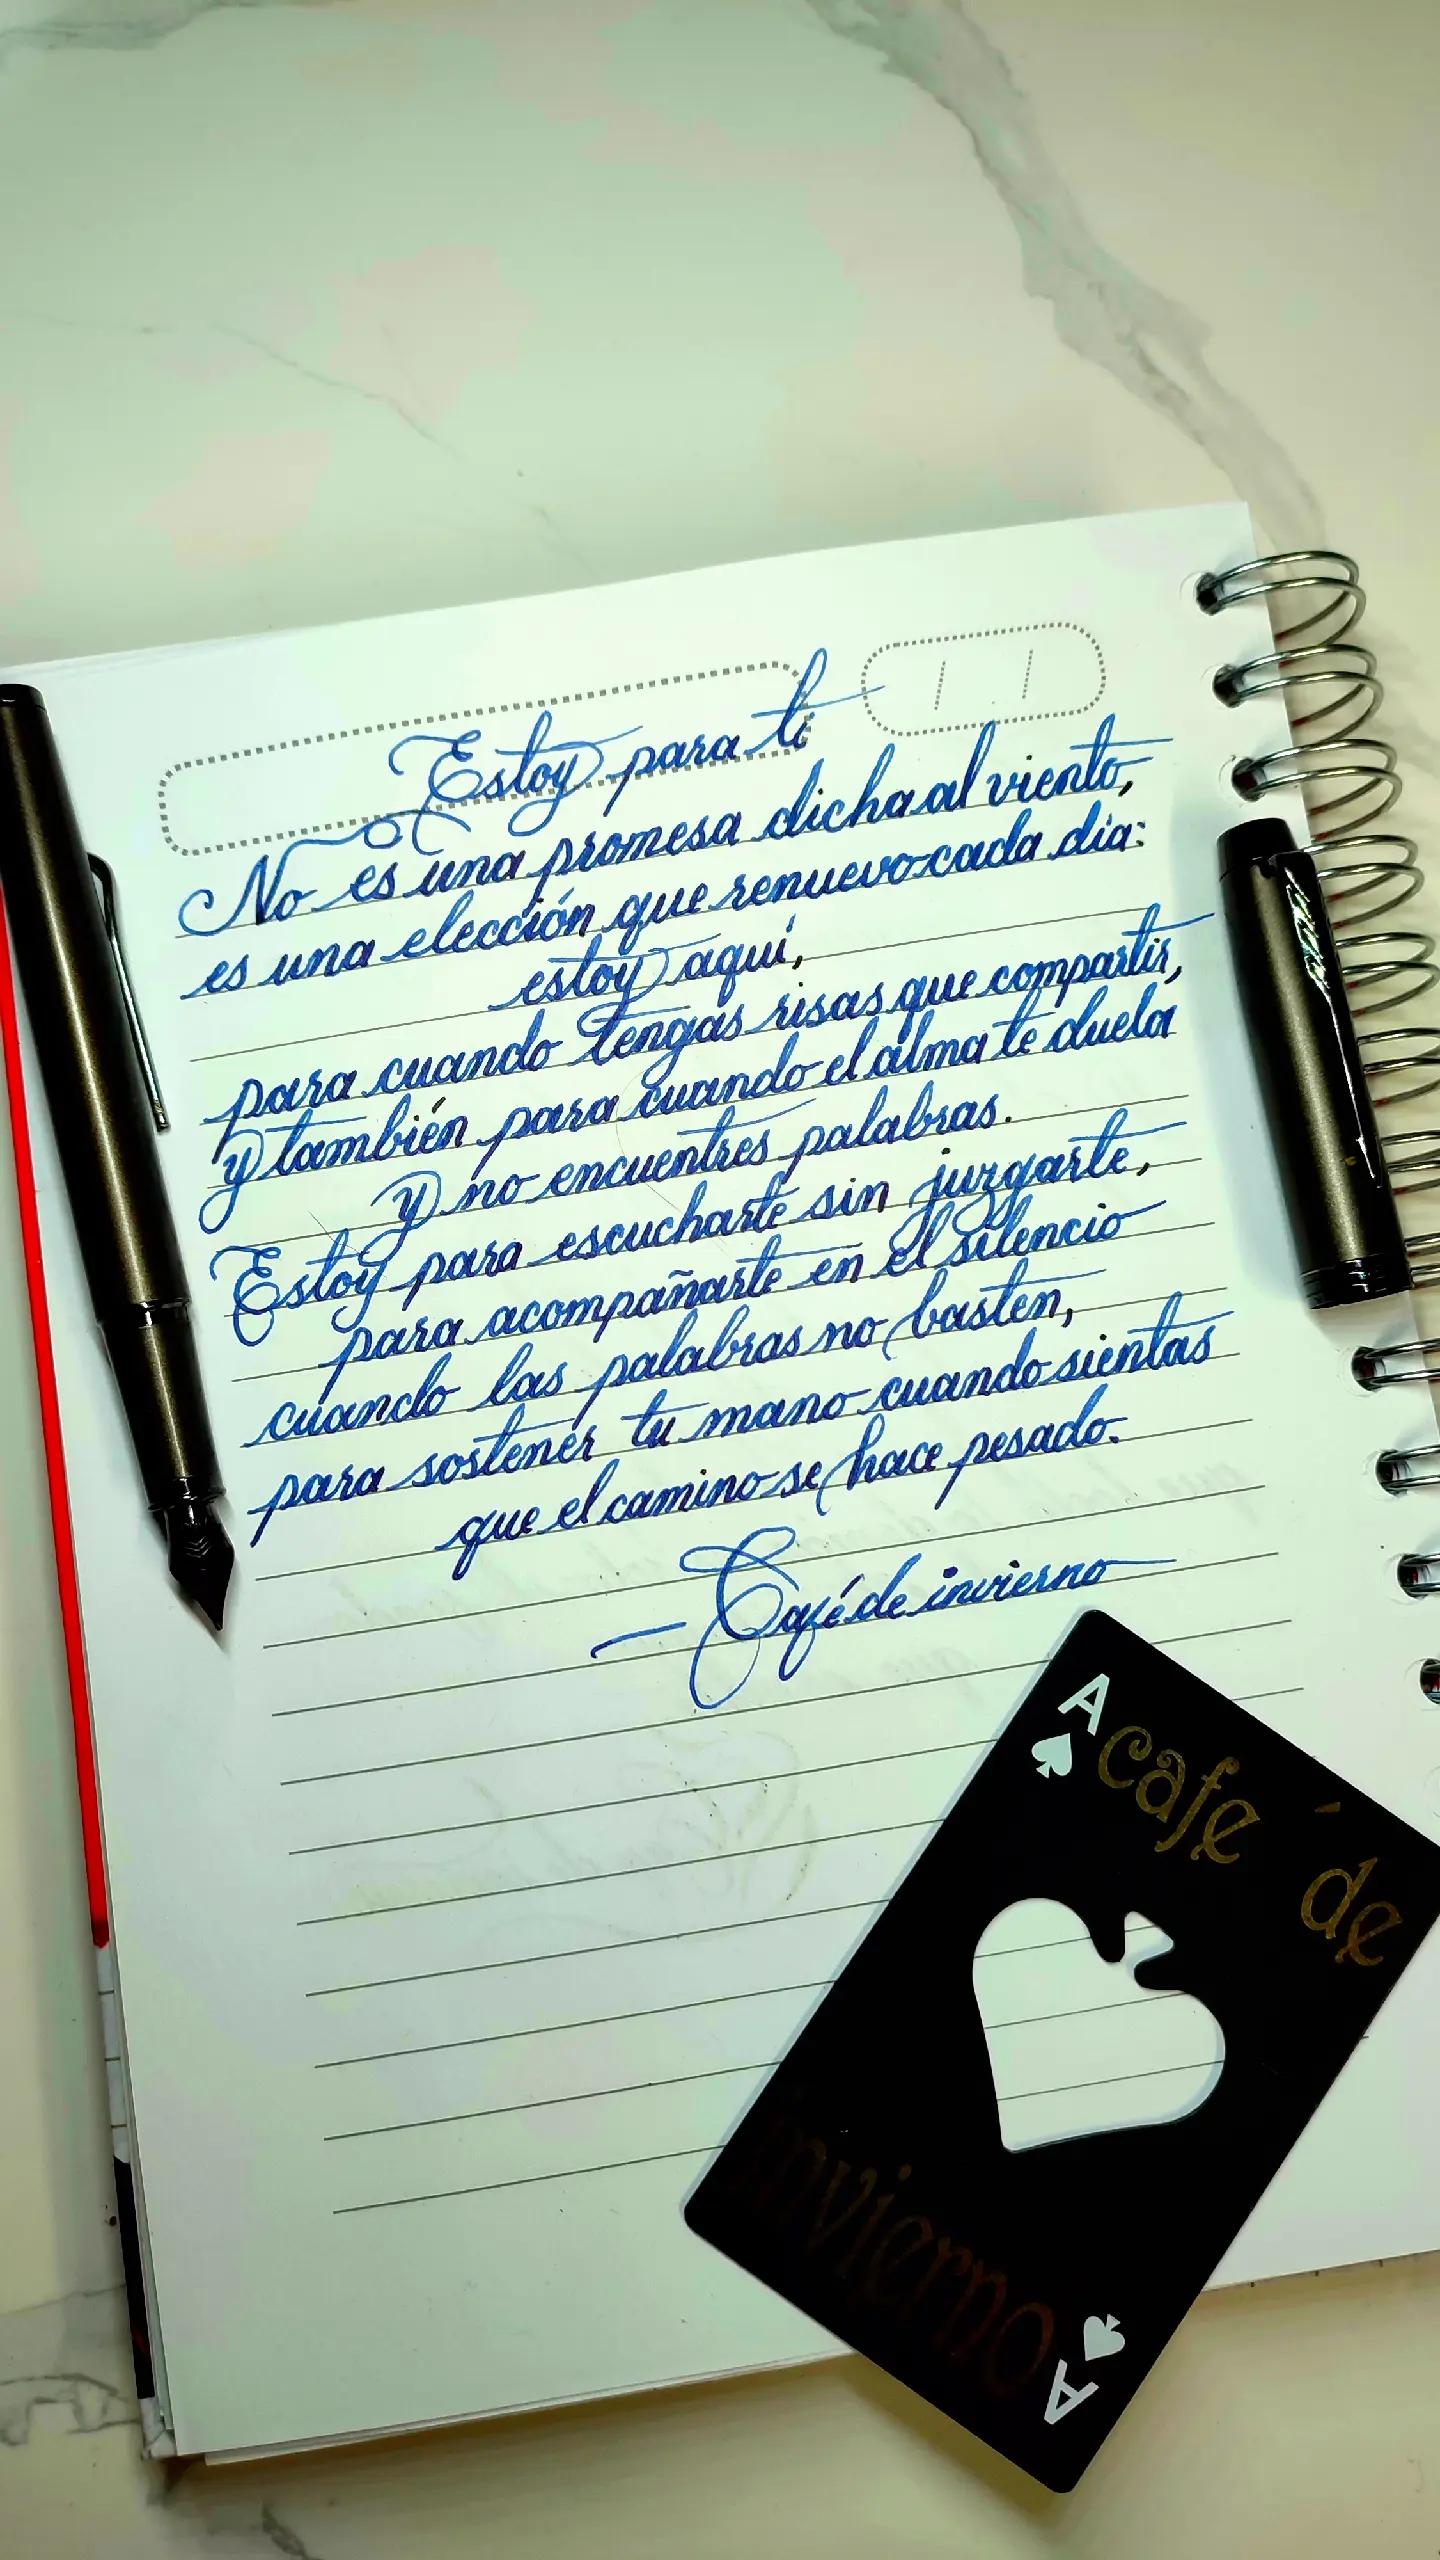 Estoy para ti
No es una promesa dicha al viento,
es una elección que renuevo cada día:
estoy aquí,
para cuando tengas risas que compartir,
y también para cuando el alma te duela
y no encuentres palabras.
Estoy para escucharte sin juzgarte,
para acompañarte en el silencio
cuando las palabras no basten,
para sostener tu mano cuando sientas
que el camino se hace pesado.
— Café de invierno
A
café de
invierno
A